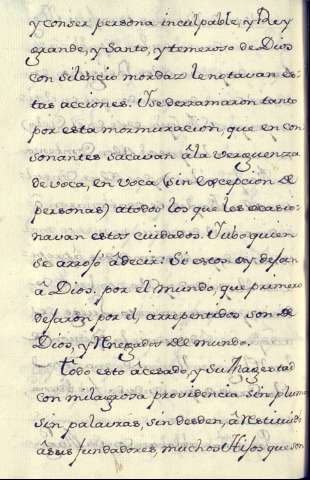 y con ser persona inculpable, y Rey
grande, y Santo, y temeroso de Dios
con silencio mordaz le notavan es-
tas acciones. Y se derramaron tanto
por esta mormuracion, que en con
sonantes sacavan âla verguenza
de voca, en voca (sin excepcion de
personas) atodos los que les ocasio-
navan estos cuidados. Y ubo quien
se arrojó âdecir: Si estos oy dejan
â Dios. por el mundo, que primero
dejaron por el, arrepentidos son de
Dios, y Renegados del mundo.
Todo esto âcesado, y su Magestad
con milagrosa providencia sin pluma
sin palavras, sin desden, â restituido
âsus fundadores, muchos Hijos que son